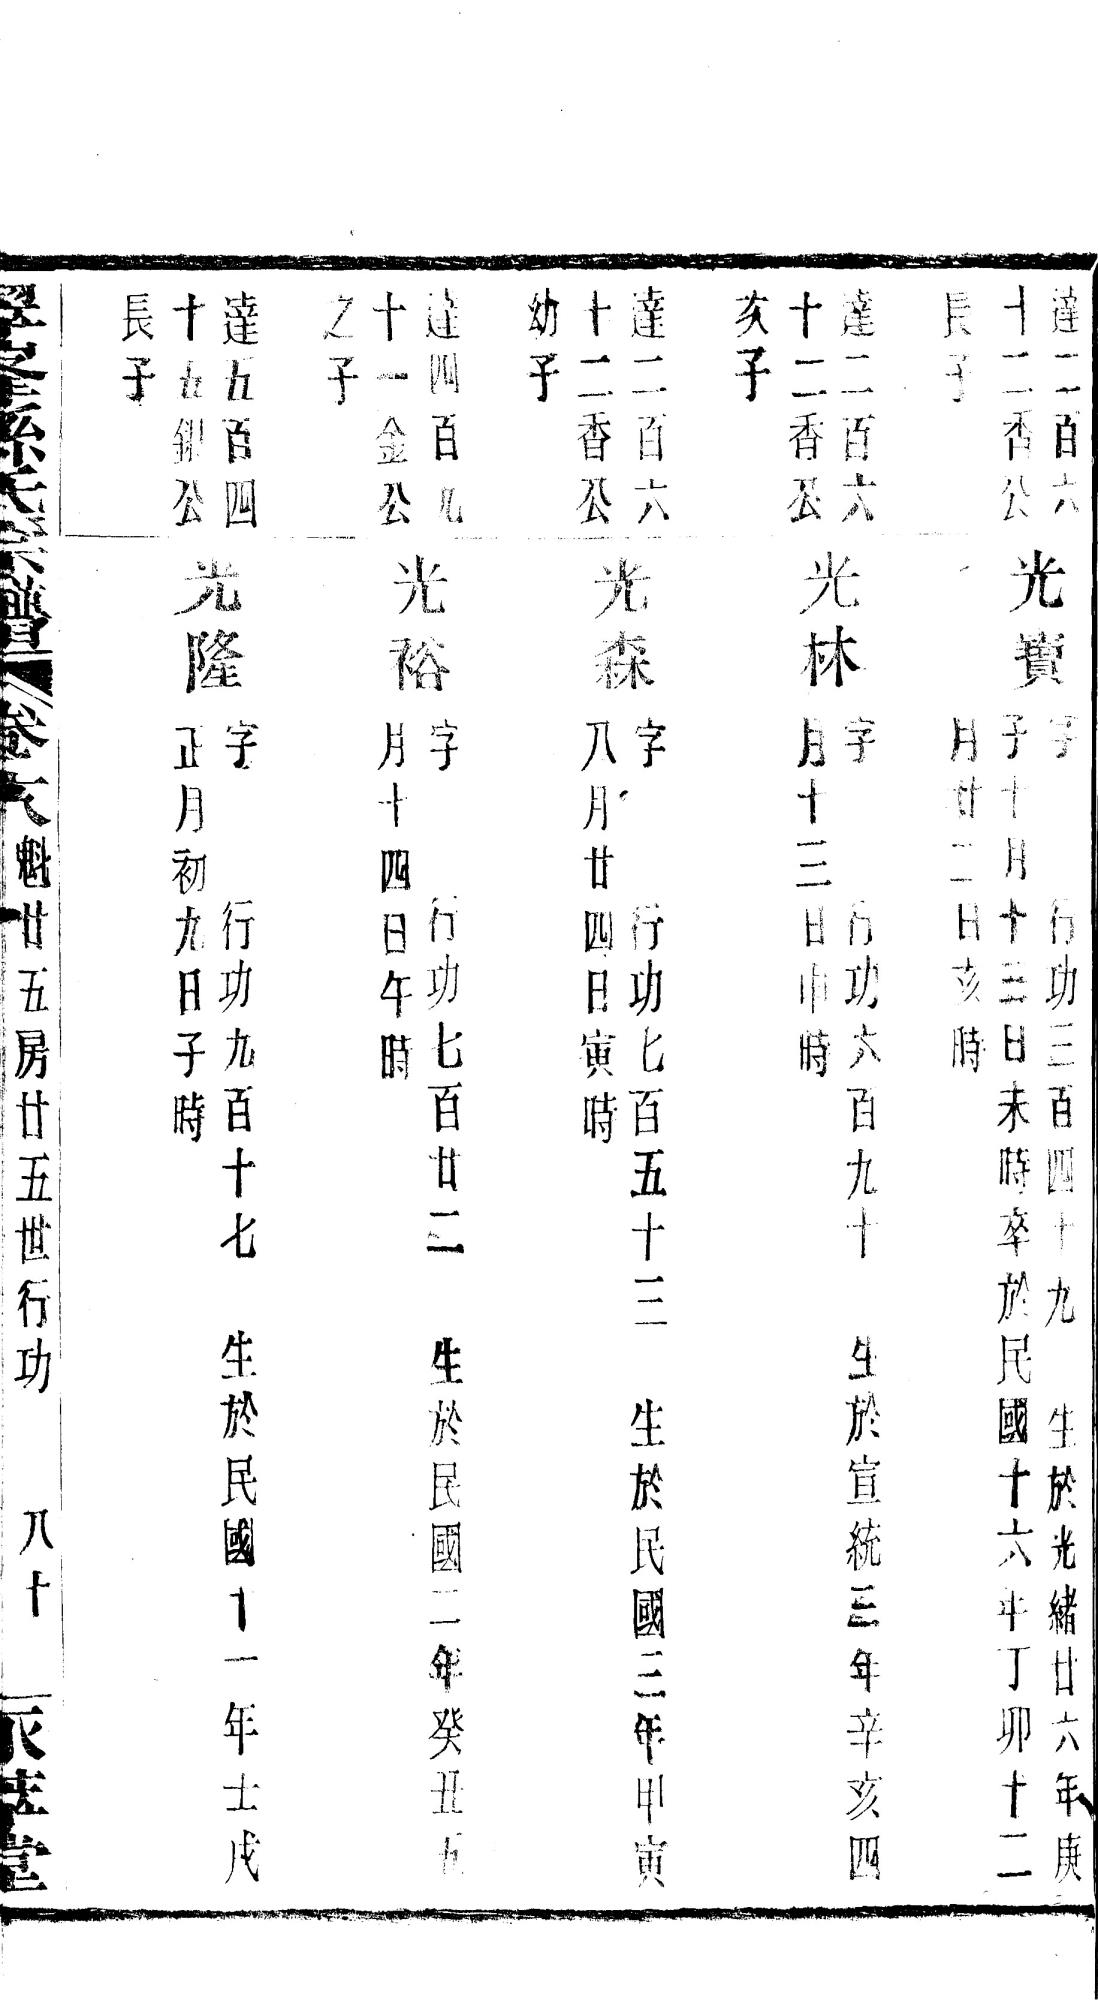 達二百六
十二香公
長子
光寶
字 行功三百四十九 生於光緒廿六年庚
子十月十三日未時卒於民國十六年丁卯十二
月廿二日亥時
達二百六
十二香公
亥子
光林
字 行功六百九十 生於宣統三年辛亥四
月十三日申時
達二百六
十二香公
幼子
光森
字 行功七百五十三 生於民國三年甲寅
八月廿四日寅時
達四百九
十一金公
之子
光裕
字 行功七百廿二 生於民國二年癸丑五
月十四日午時
達五百四
十五銀公
長子
光隆
字 行功九百十七 生於民國十一年士戌
正月初九日子時
孫氏宗譜 卷 魁廿五房廿五世行功 八十 堂